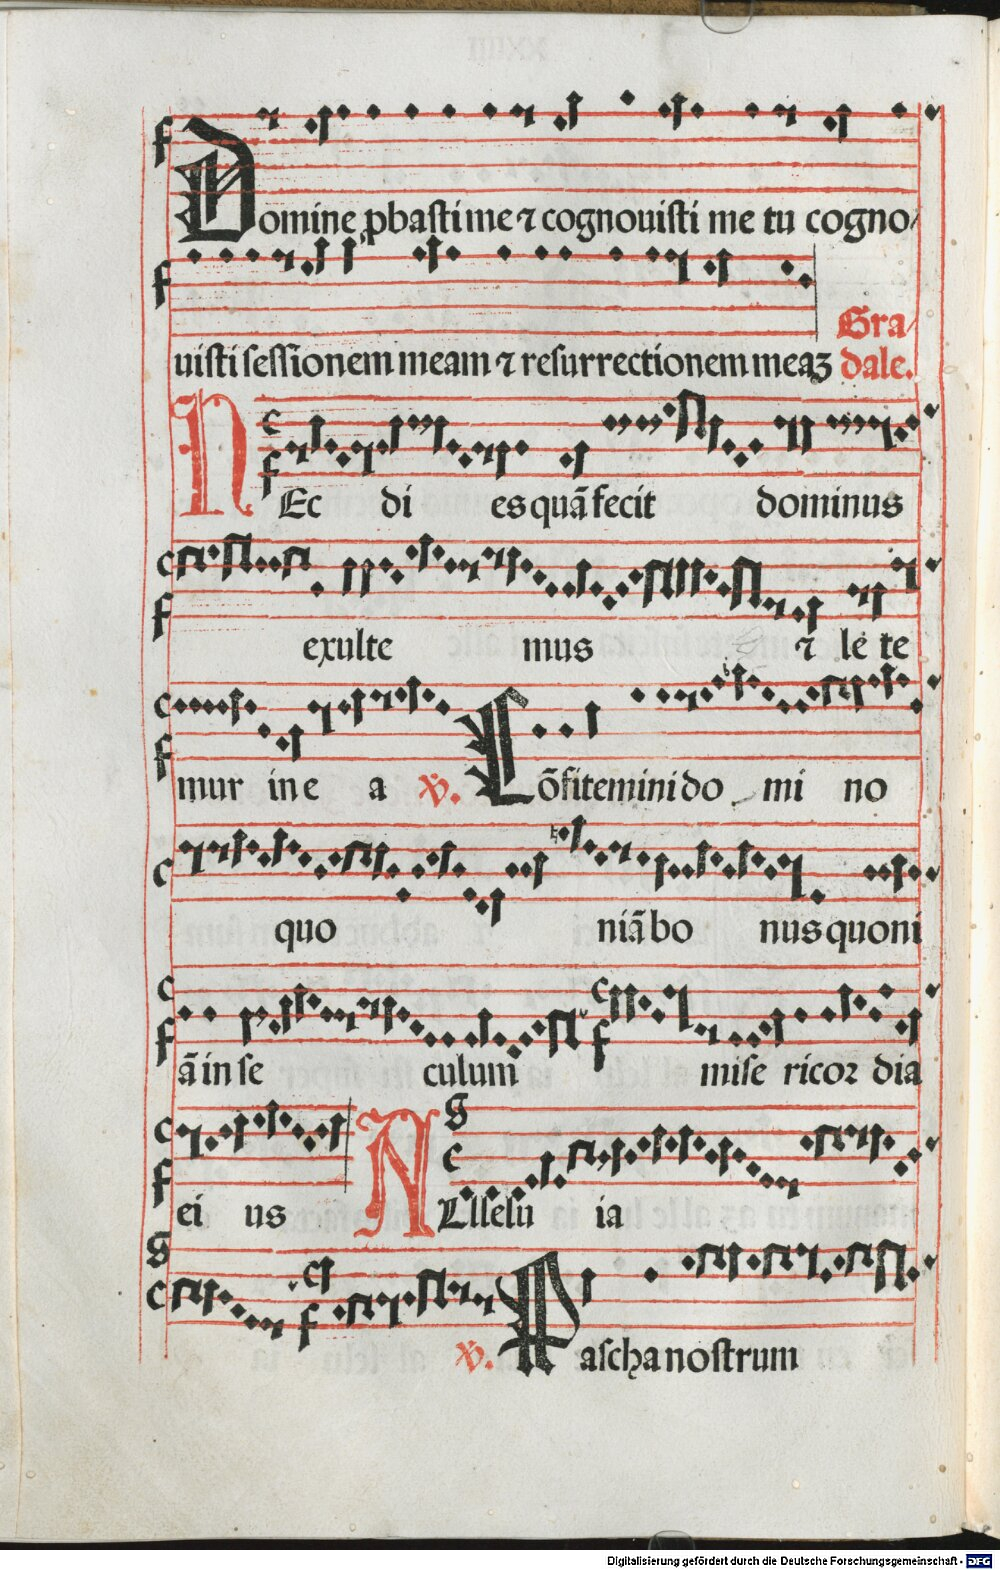 Domine ꝓbasti me ⁊ cognouisti me tu cogno/
uisti sessionem meam ⁊ resurrectionem meaʒ Gra/
dale.
HEc di es quā fecit dominus
exulte mus ⁊ le te
mur in e a ℣. Cōfitemini do mi no
quo niā bo nus quoni
ā in se culum mise ricoꝛ dia
ei us ALlelu ia
℣. Pascha nostrum
Digitalisierung gefördert durch die Deutsche Forschungsgemeinschaft - DFG